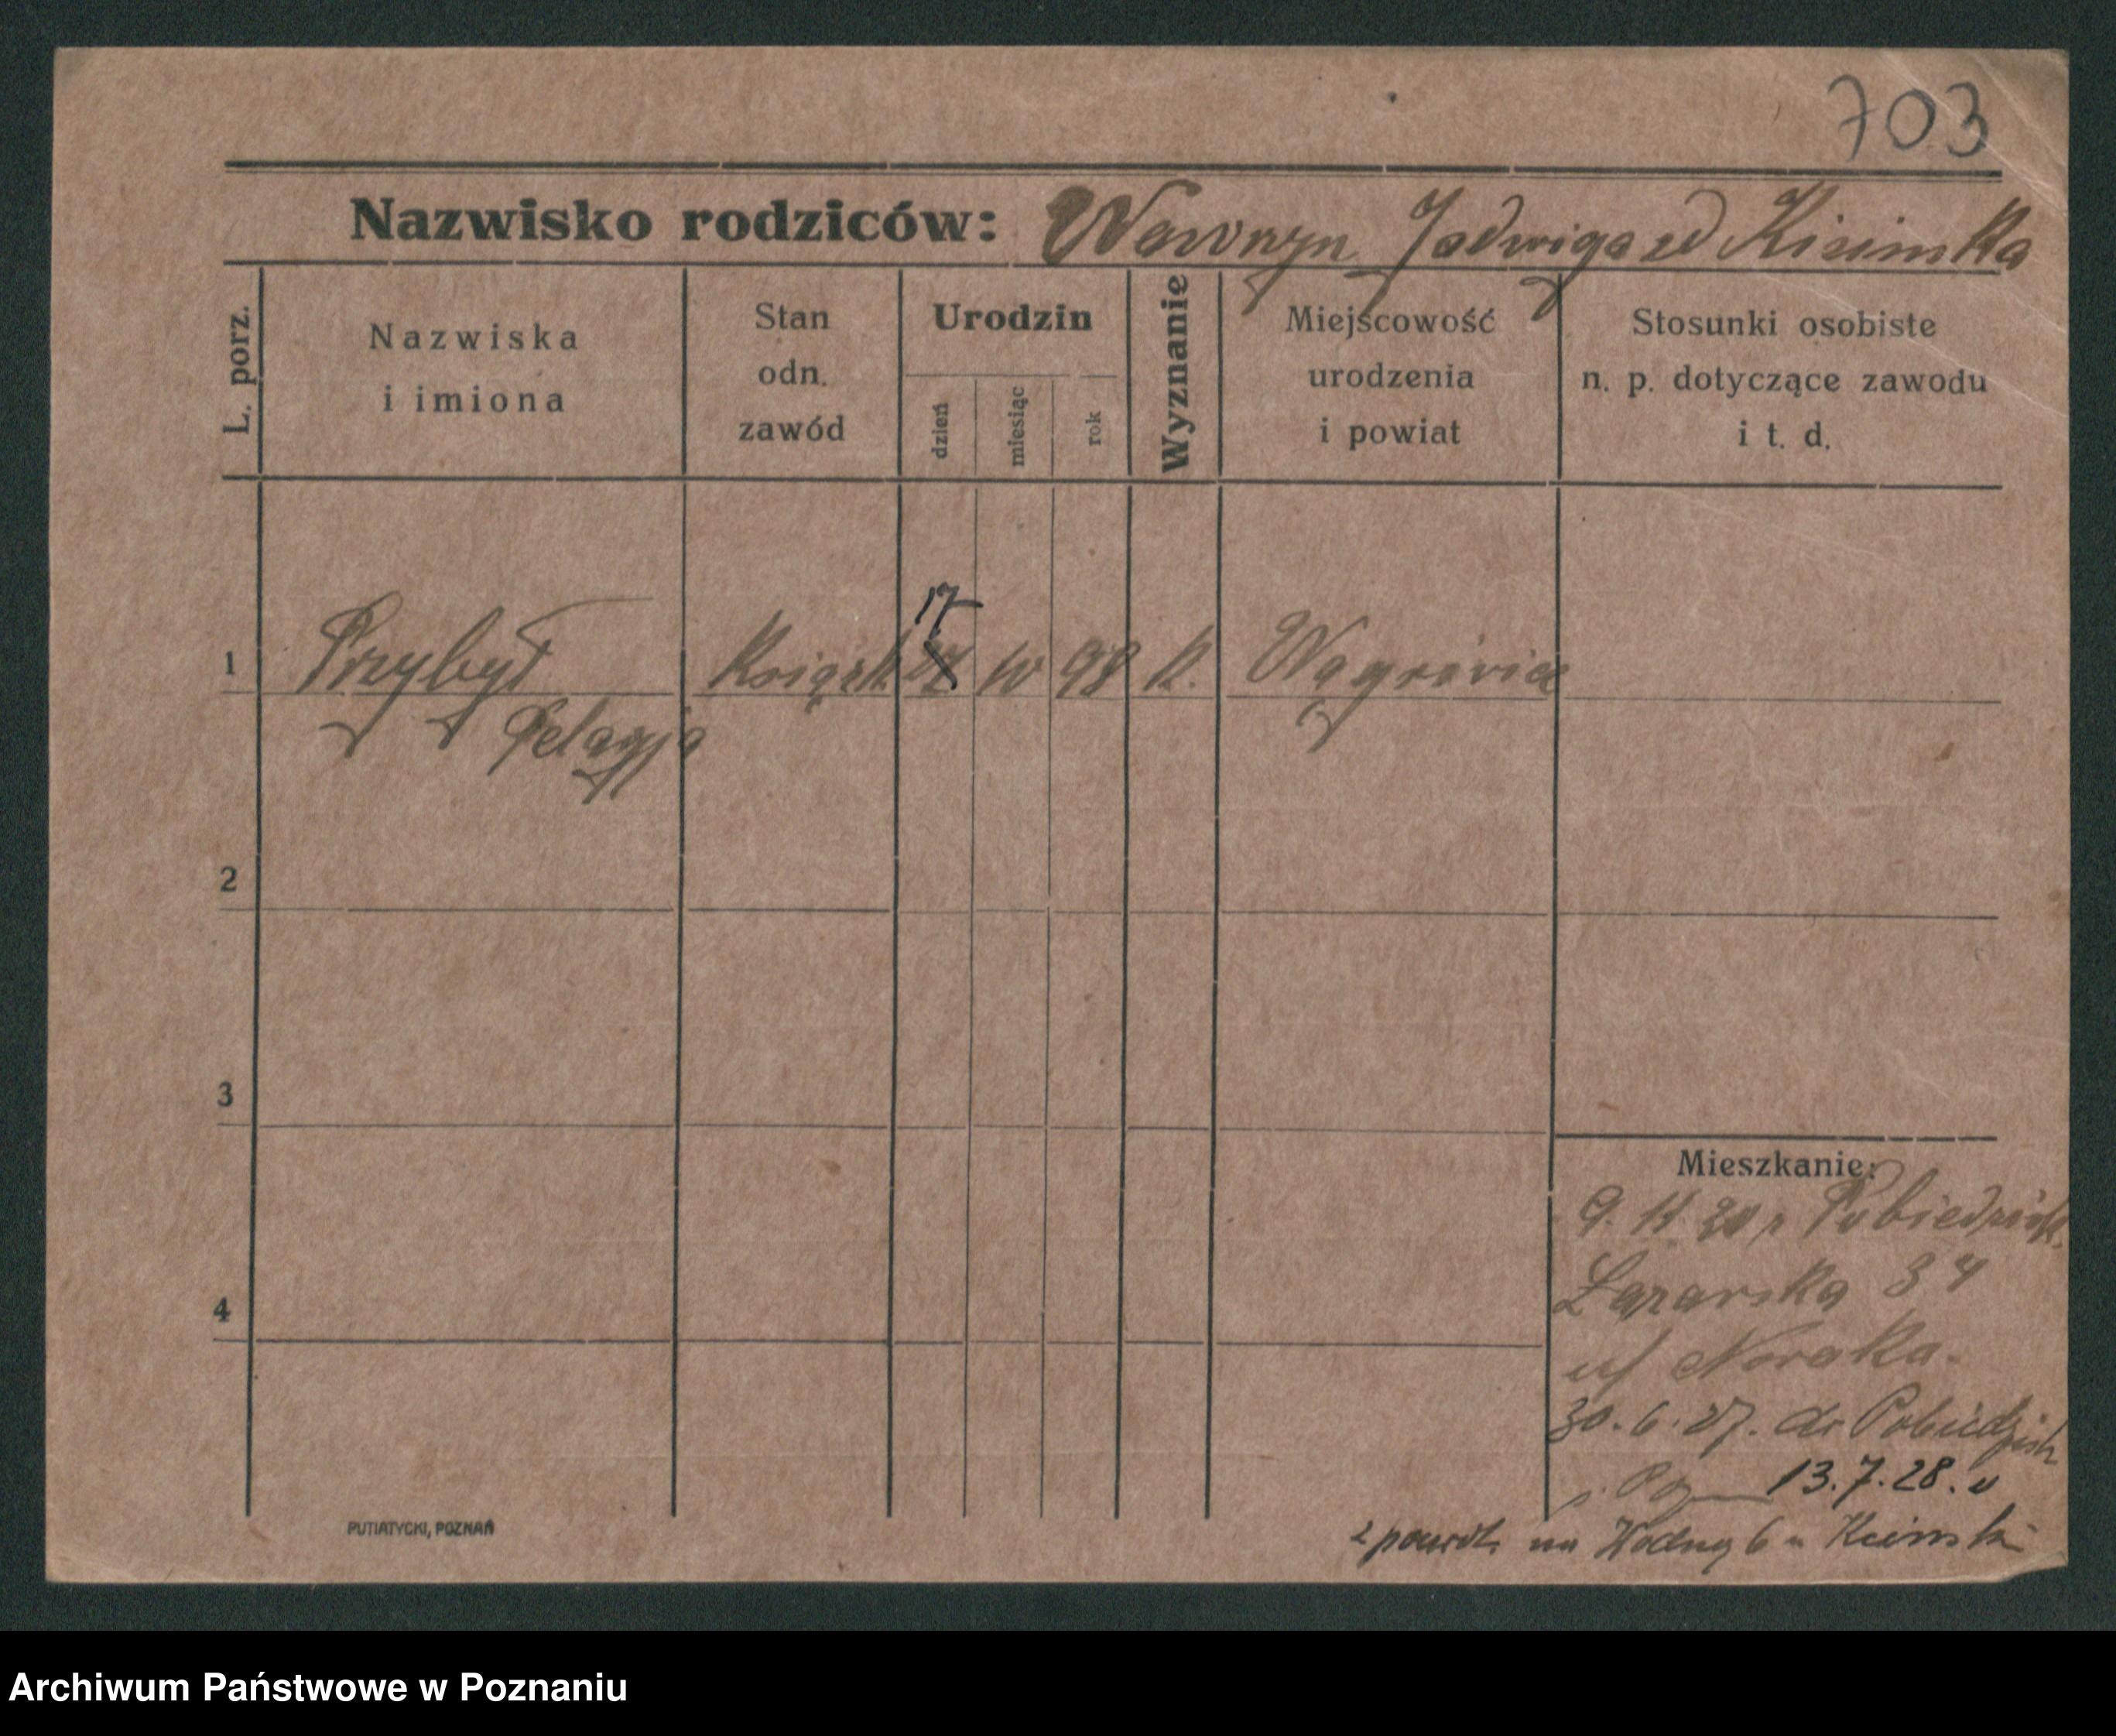 703
Nazwisko rodziców: Wawrzyn Jadwiga zd Kisimska
L. porz.
Nazwiska
i imiona
Stan
odn.
zawód
Urodzin
dzień
miesiąc
rok
Wyznanie
Miejscowość
urodzenia
i powiat
Stosunki osobiste
n. p. dotyczące zawodu
i t. d.
17
1 Przybył Książk. 27 10 98 k. Wągrowiec
Pelagja
2
3
4
Mieszkanie:
9. 11. 20 z Pobiedzisk.
Łazarska 34
u/ Nowaka.
30. 6. 27. do Pobiedzisk
13. 7. 28. u
z powrot. na Wodną 6 u
PUTIATYCKI, POZNAŃ
Archiwum Państwowe w Poznaniu